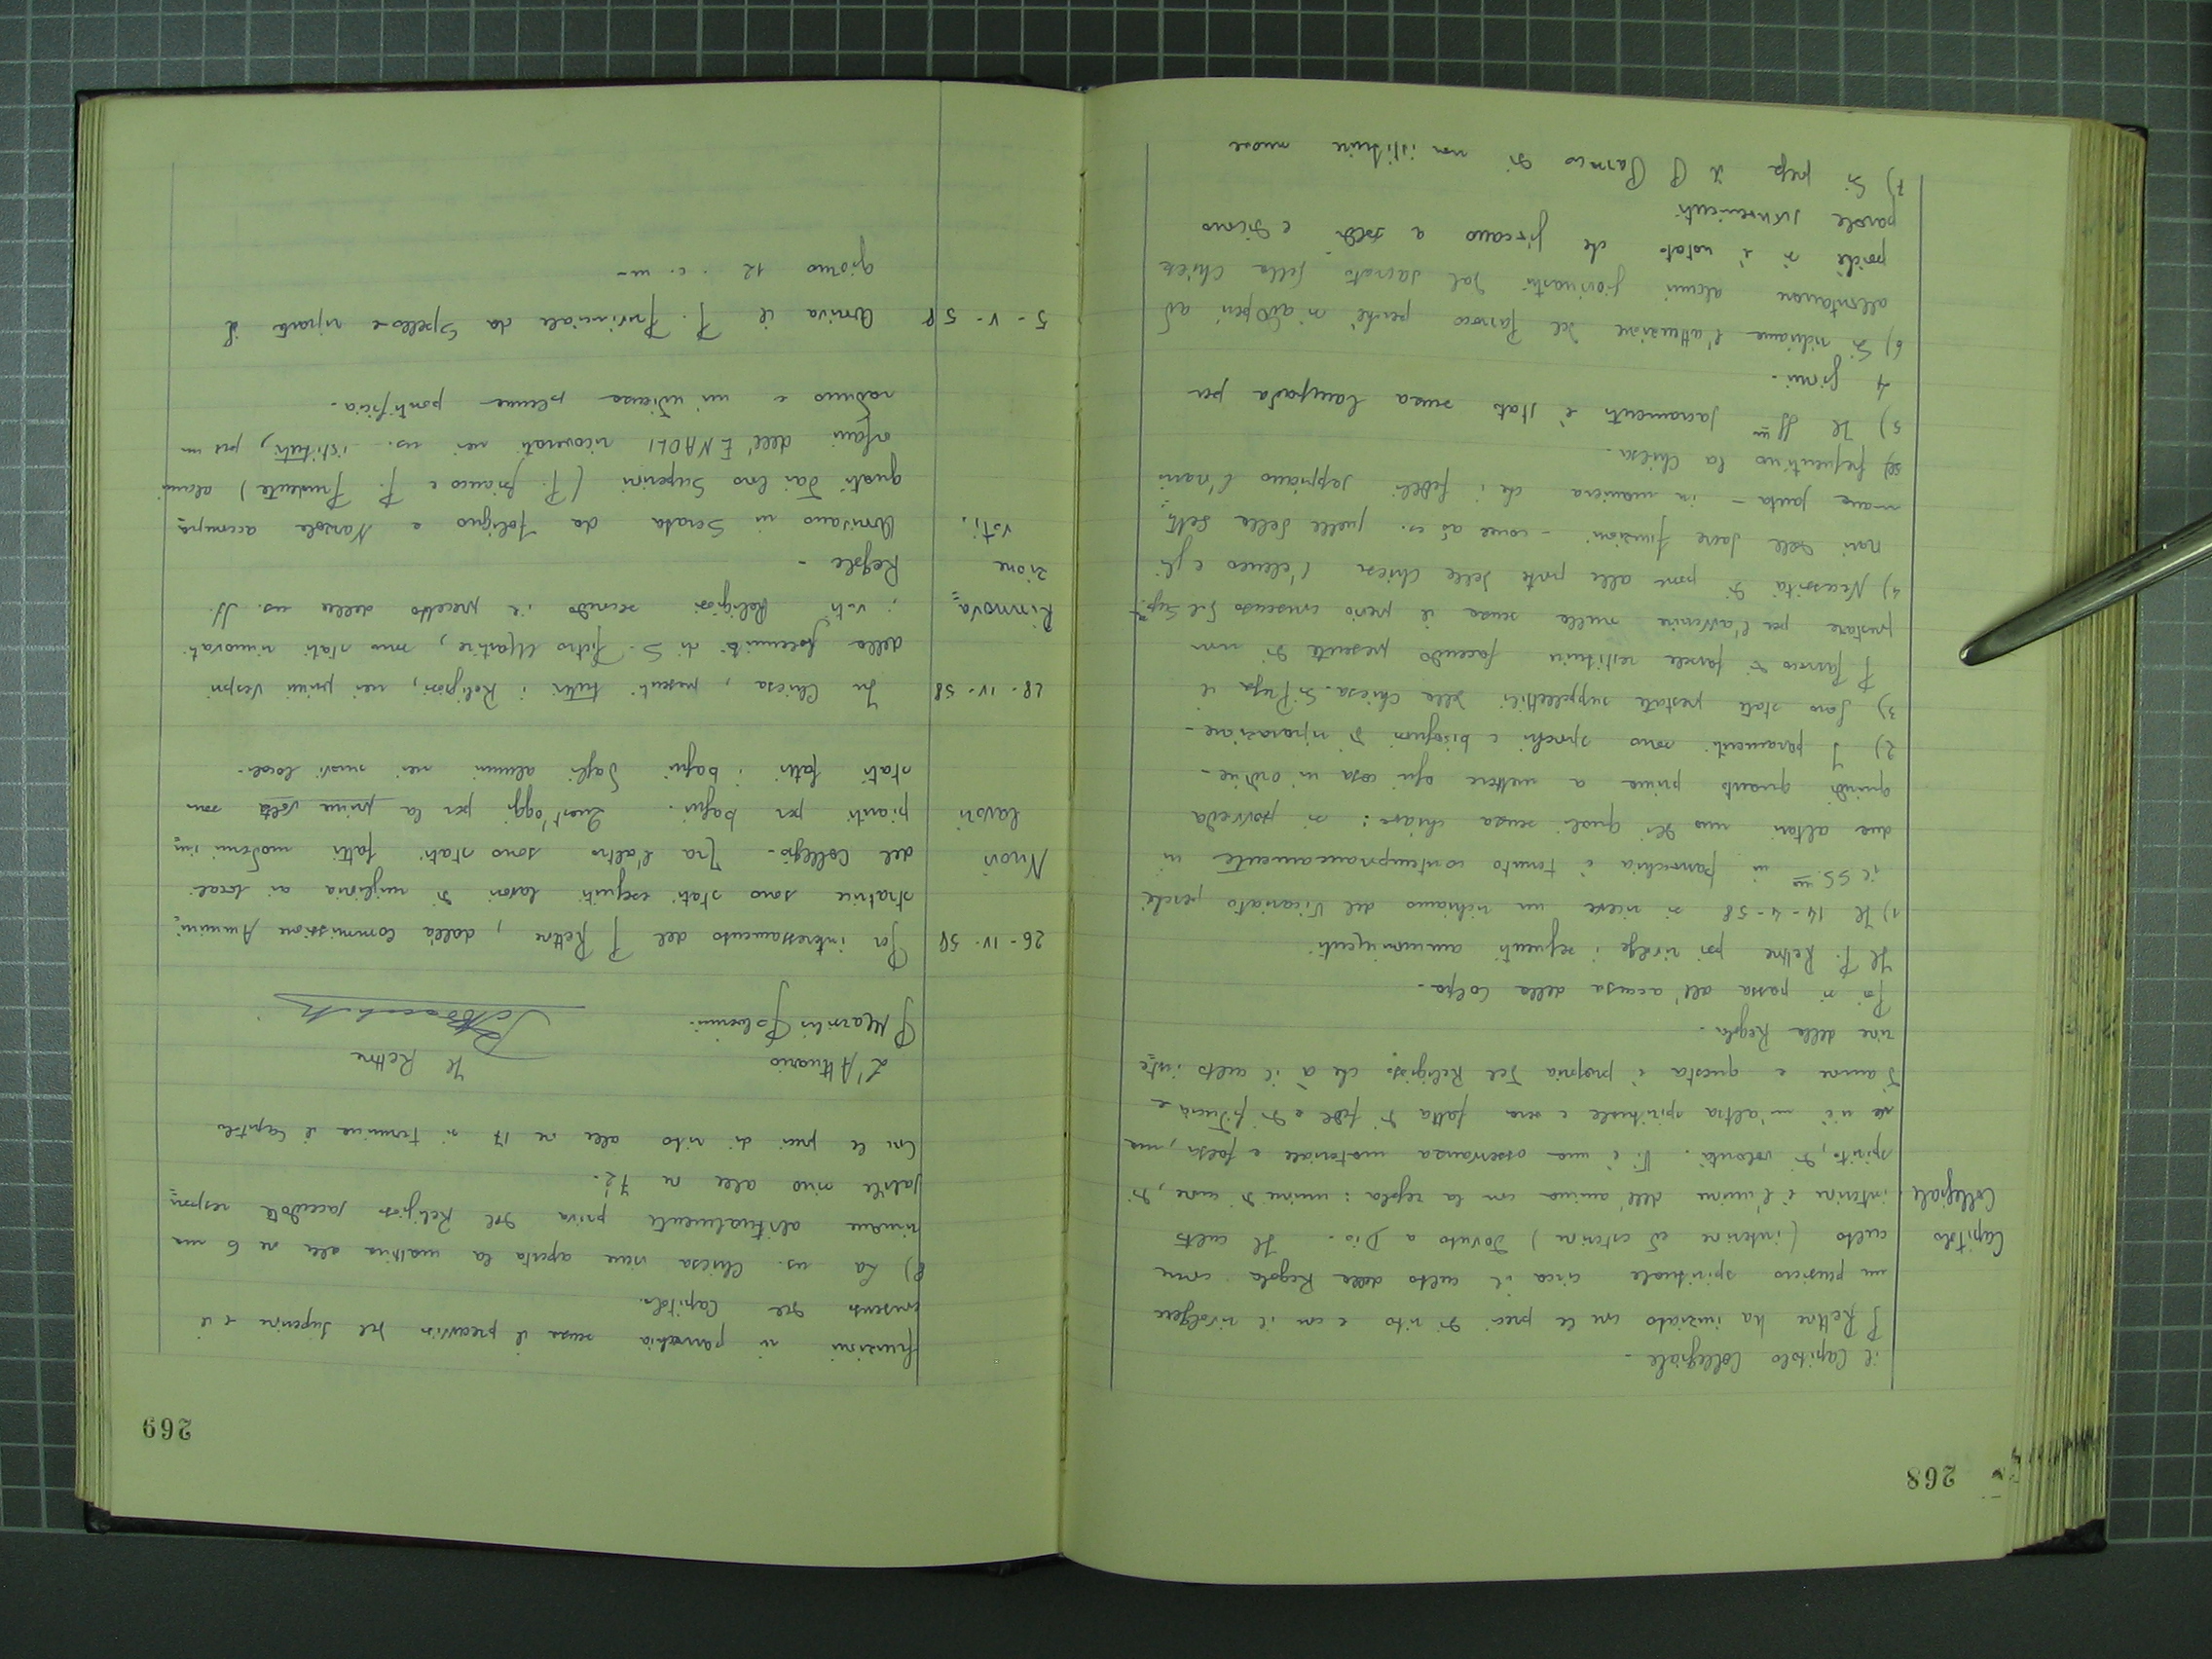 268
il Capitolo Collegiale -
P Rettore ha iniziato con le preci di rito e con il rivolgere
un pensiero spirituale circa il culto della Regola come
Capitolo
culto (interiore ed esteriore) dovuto a Dio. Il culto
Collegiale
interiore è l'unione dell'anima con la regola: unione di cuore, di
spirito, di volontà. Vi è una osservanza materiale e falsa, ma
ve n'è un'altra spirituale e vera fatta di fede e di fiducia e
d'amore e questa è propria del Religioso che à il culto inte=
riore della Regola.
Poi si passa all'accusa della Colpa.
Il P. Rettore poi rivolge i seguenti ammonimenti:
1) Il 14-4-58 si riceve un richiamo del Vicariato perchè
il SS.mo in parrocchia è tenuto contemporaneamente in
due altari uno dei quali senza chiave: si provveda
quindi quanto prima a mettere ogni cosa in ordine -
2) I paramenti sono sporchi e bisognosi di riparazione -
3) Sono state prestate suppellettili della Chiesa. Si Prega il
P. Parroco di farsele restituire facendo presente di non
prestare per l'avvenire nulla senza il previo consenso del Sup.re
4) Necessità di porre alle porte delle Chiese l'elenco e gli
orari delle sacre funzioni - come ad es. quelle della Setti=
mana santa - in maniera che i fedeli sappiano l'orario
se frequentino la Chiesa.
5) Il SS.mo Sacramento è stato senza lampada per
4 giorni.
6) Si richiama l'attenzione del Parroco perchè si adoperi ad
allontanare alcuni giovinastri dal sacrato della Chiesa
poichè si è notato che giocano a soldi e dicono
parole sconvenienti
7) Si prega il P Parroco di non istituire nuove
269
funzioni in parrocchia senza il preavviso del Superiore e il
consenso del Capitolo.
8) La ns. Chiesa viene aperta la mattina alle re 6 ma
rimane abitualmente priva del Religioso sacerdote respon=
sabile sino alle re 7½.
Con le preci di rito alle re 17 si termina il Capitolo
L'Attuario Il Rettore
P Marsilio
26-IV-58
Per interessamento del P Rettore, dalla Commissione Ammini=
stratrice sono stati eseguiti lavori di miglioria ai locali
Nuovi
del Collegio - Tra l'altro sono stati fatti moderni im=
lavori
pianti per bagni. Quest'oggi per la prima volta sono
stati fatti i bagni dagli alunni nei nuovi locali.
28-IV-58
In Chiesa, presenti tutti i Religiosi, nei primi Vespri
della solennità di S. Pietro Martire, sono stati rinnovati
Rinnova=
i voti Religiosi secondo il precetto delle ns. SS.
zione
Regole -
voti.
Arrivano in serata da Foligno e Narsole accompa=
gnati dai loro Superiori (P. Franco e P. Prudente) alcuni
orfani dell'ENAOLI ricoverati nei ns. istituti, per un
raduno e un'udienza plenme pontificia.
5-V-58
Arriva il P. Provinciale da Spello e riparte il
giorno 12 . c. m -